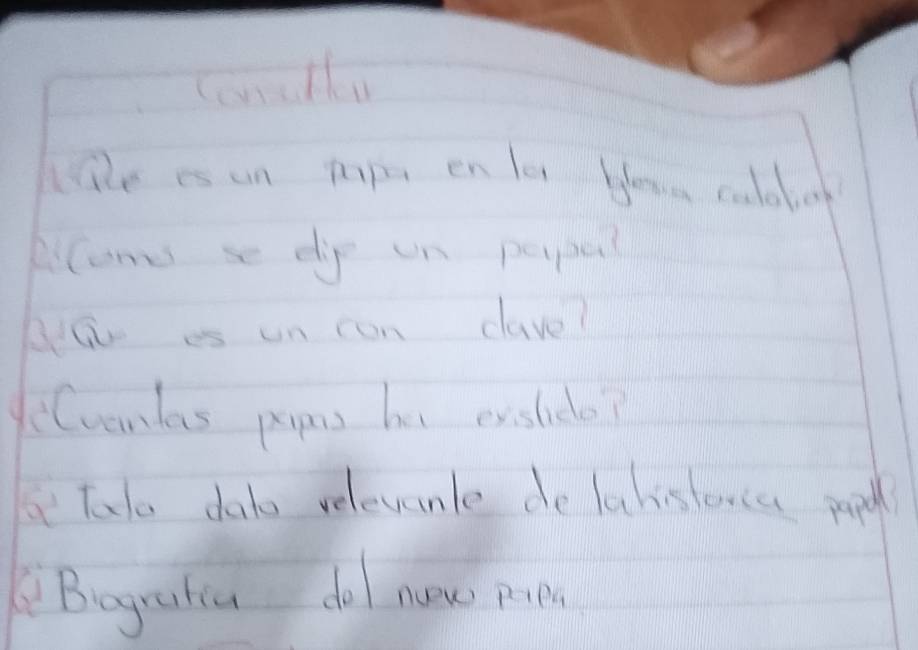 Consulta
1 ¿Qe es un papa en la Iglesia catolica?
2 ¿Como se dije un papa?
3 ¿Qu es un con clave?
4 ¿Cuantas papas ha existido?
5 Todo dato relevante de la historia papal
6 Biografia del nuevo papa